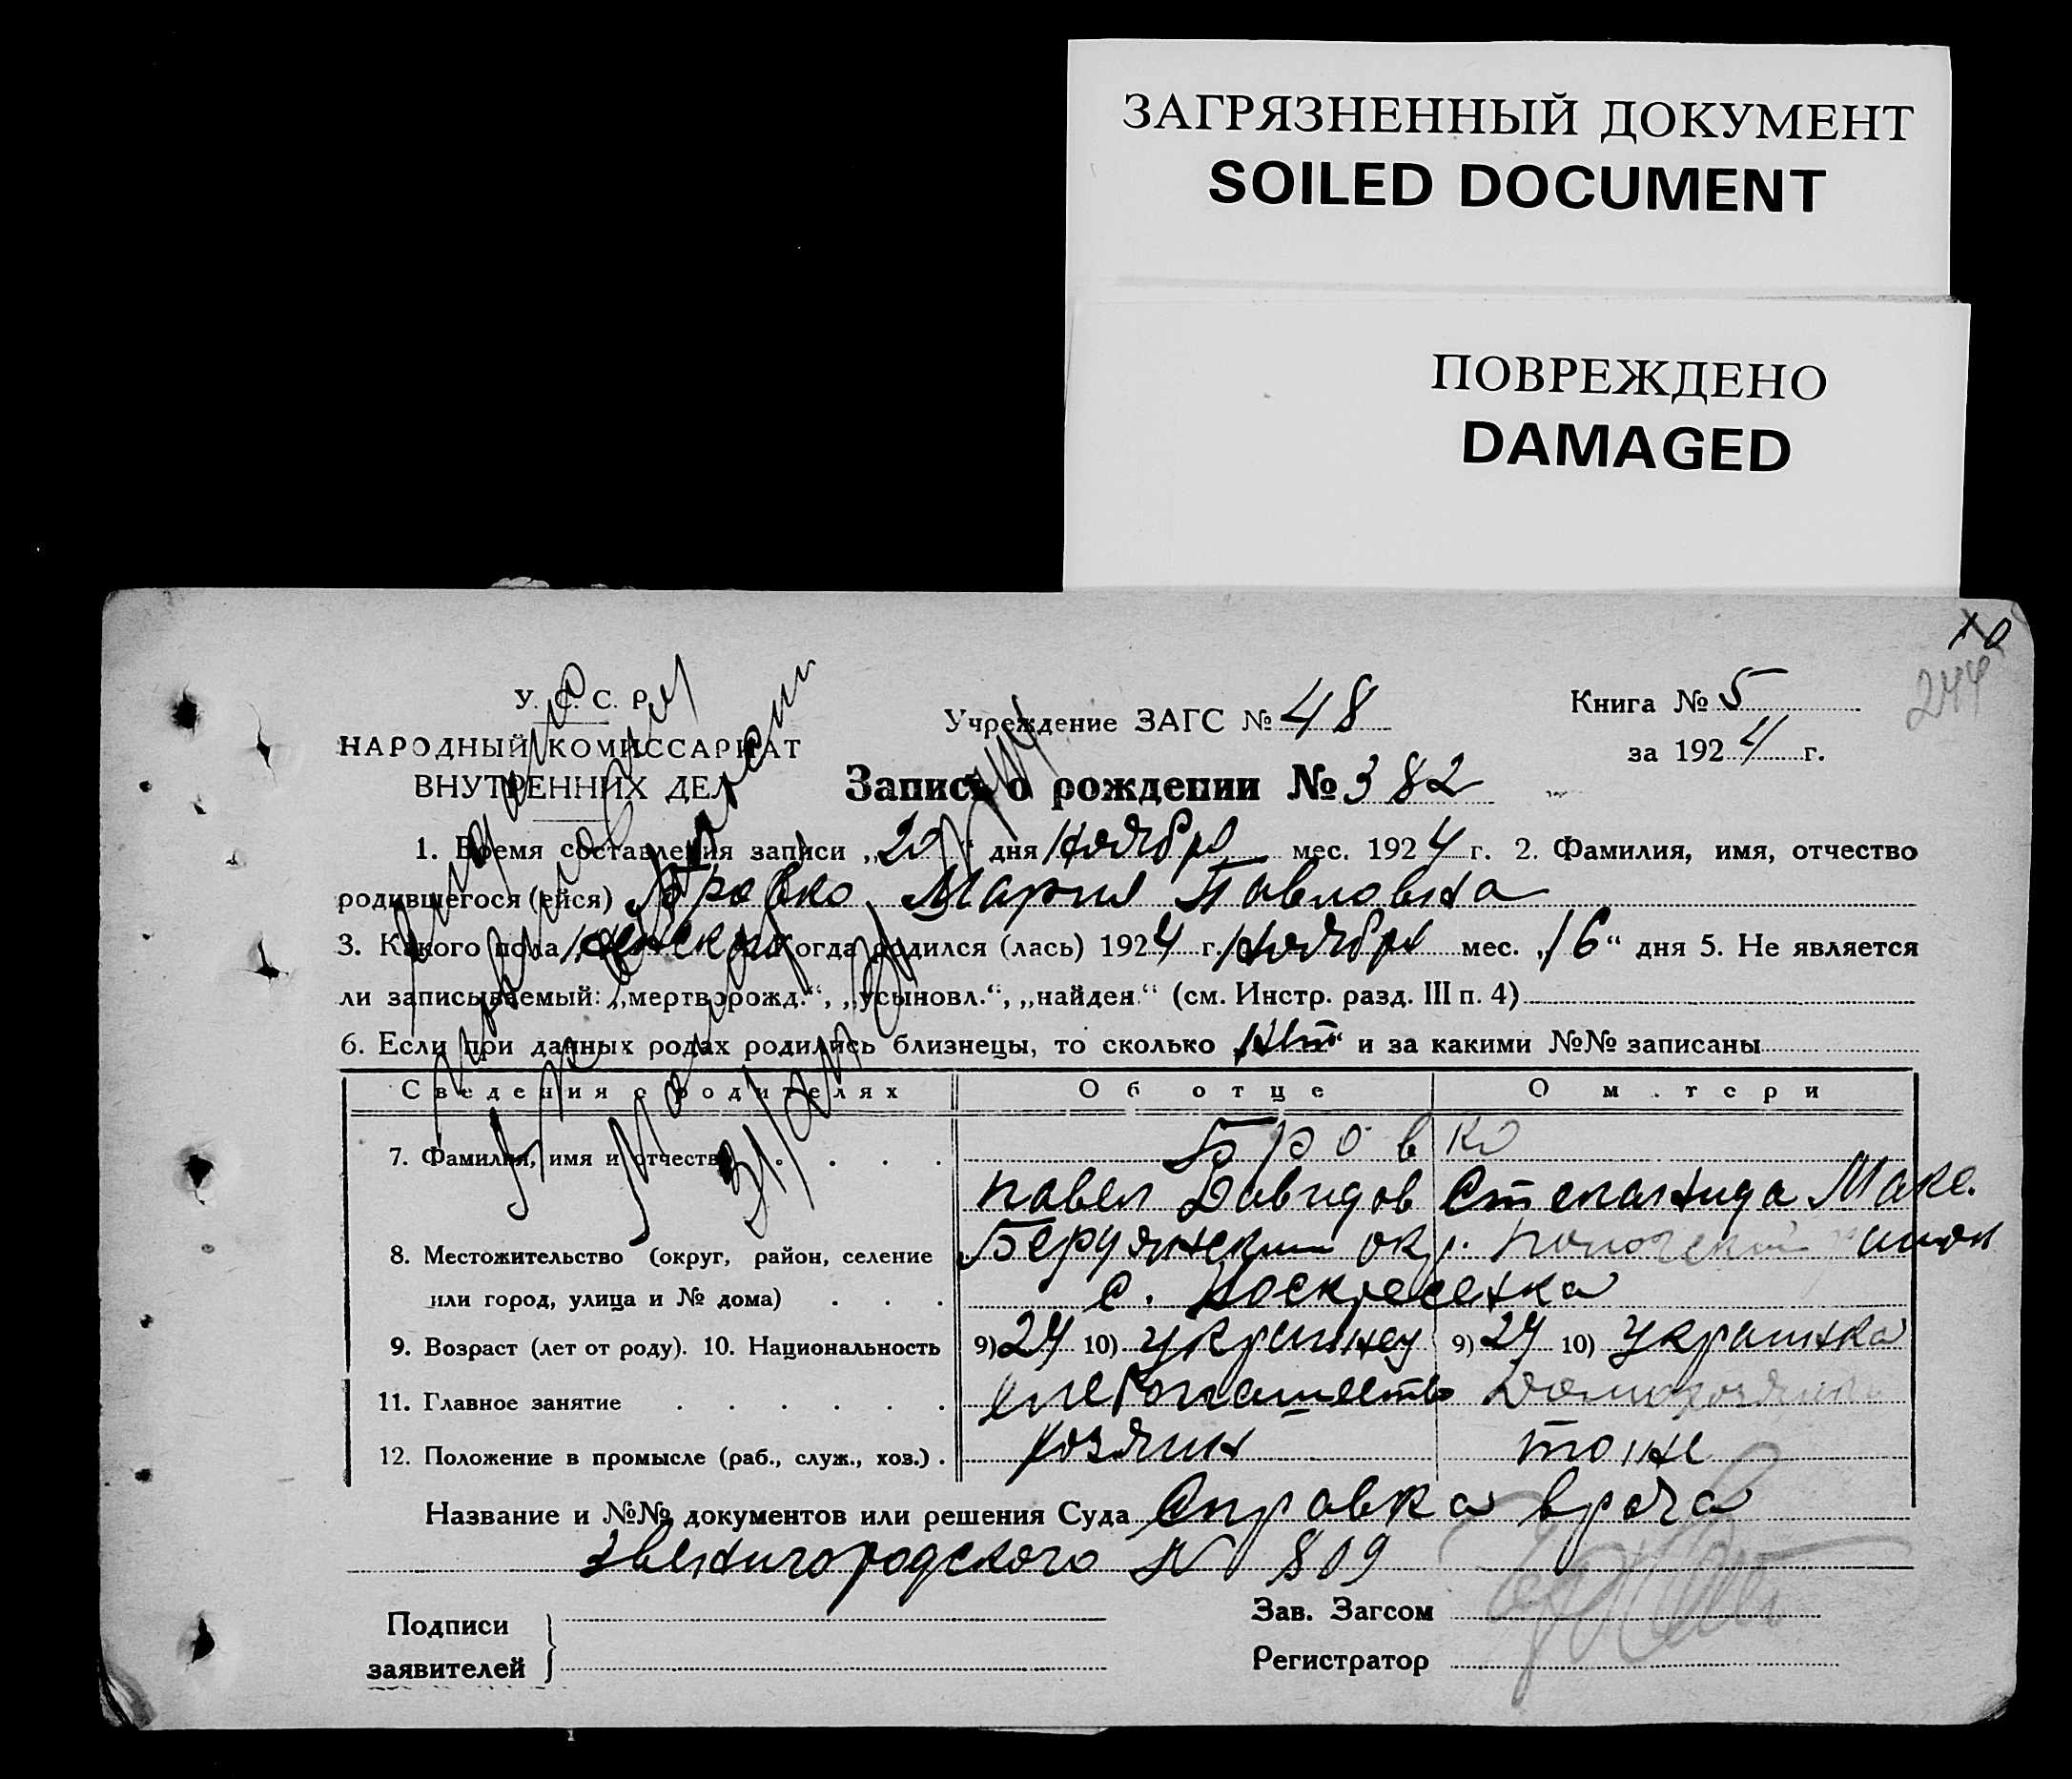 ЗАГРЯЗНЕННЫЙ ДОКУМЕНТ
SOILED DOCUMENT
ПОВРЕЖДЕНО
DAMAGED
244
У. С. С. Р.
НАРОДНЫЙ КОМИССАРИАТ
ВНУТРЕННИХ ДЕЛ
Учреждение ЗАГС № 48
Книга № 5
за 1924 г.
Запись о рождении № 382
1. Время составления записи „20“ дня ноября мес. 1924 г. 2. Фамилия, имя, отчество
родившегося (ейся) Бровко Мария Павловна
3. Какого пола женск. Когда родился (лась) 1924 г. ноября мес. „16“ дня 5. Не является
ли записываемый: „мертворожд.“, „усыновл.“, „найден.“ (см. Инстр. разд. III п. 4)
6. Если при данных родах родились близнецы, то сколько „нет“ и за какими №№ записаны
Сведения о родителях Об отце О м . тери
7. Фамилия, имя и отчество Бровко
Павел Давидов Степанида Макс.
8. Местожительство (округ, район, селение Бердянский окр. Пологский
или город, улица и № дома) с. Воскресенка
9. Возраст (лет от роду). 10. Национальность 9) 24 10) украинец 9) 24 10) украинка
11. Главное занятие хлебопашество Домохозяйка
12. Положение в промысле (раб., служ., хоз.) хозяин тоже
Название и №№ документов или решения Суда Справка врача
Звенигородского № 809
Подписи
заявителей
Зав. Загсом
Регистратор